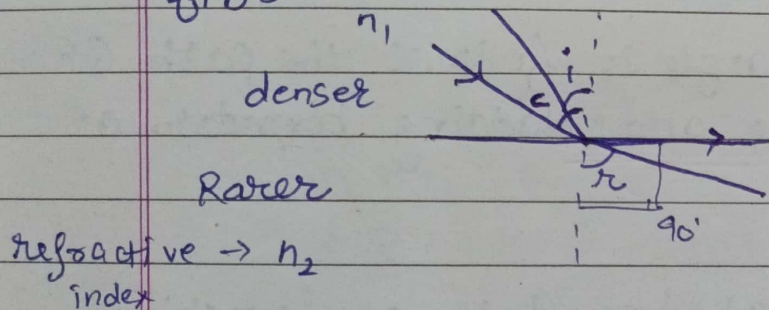 n₁
i
denser
c
Rarer
r
90°
refractive → n₂
index